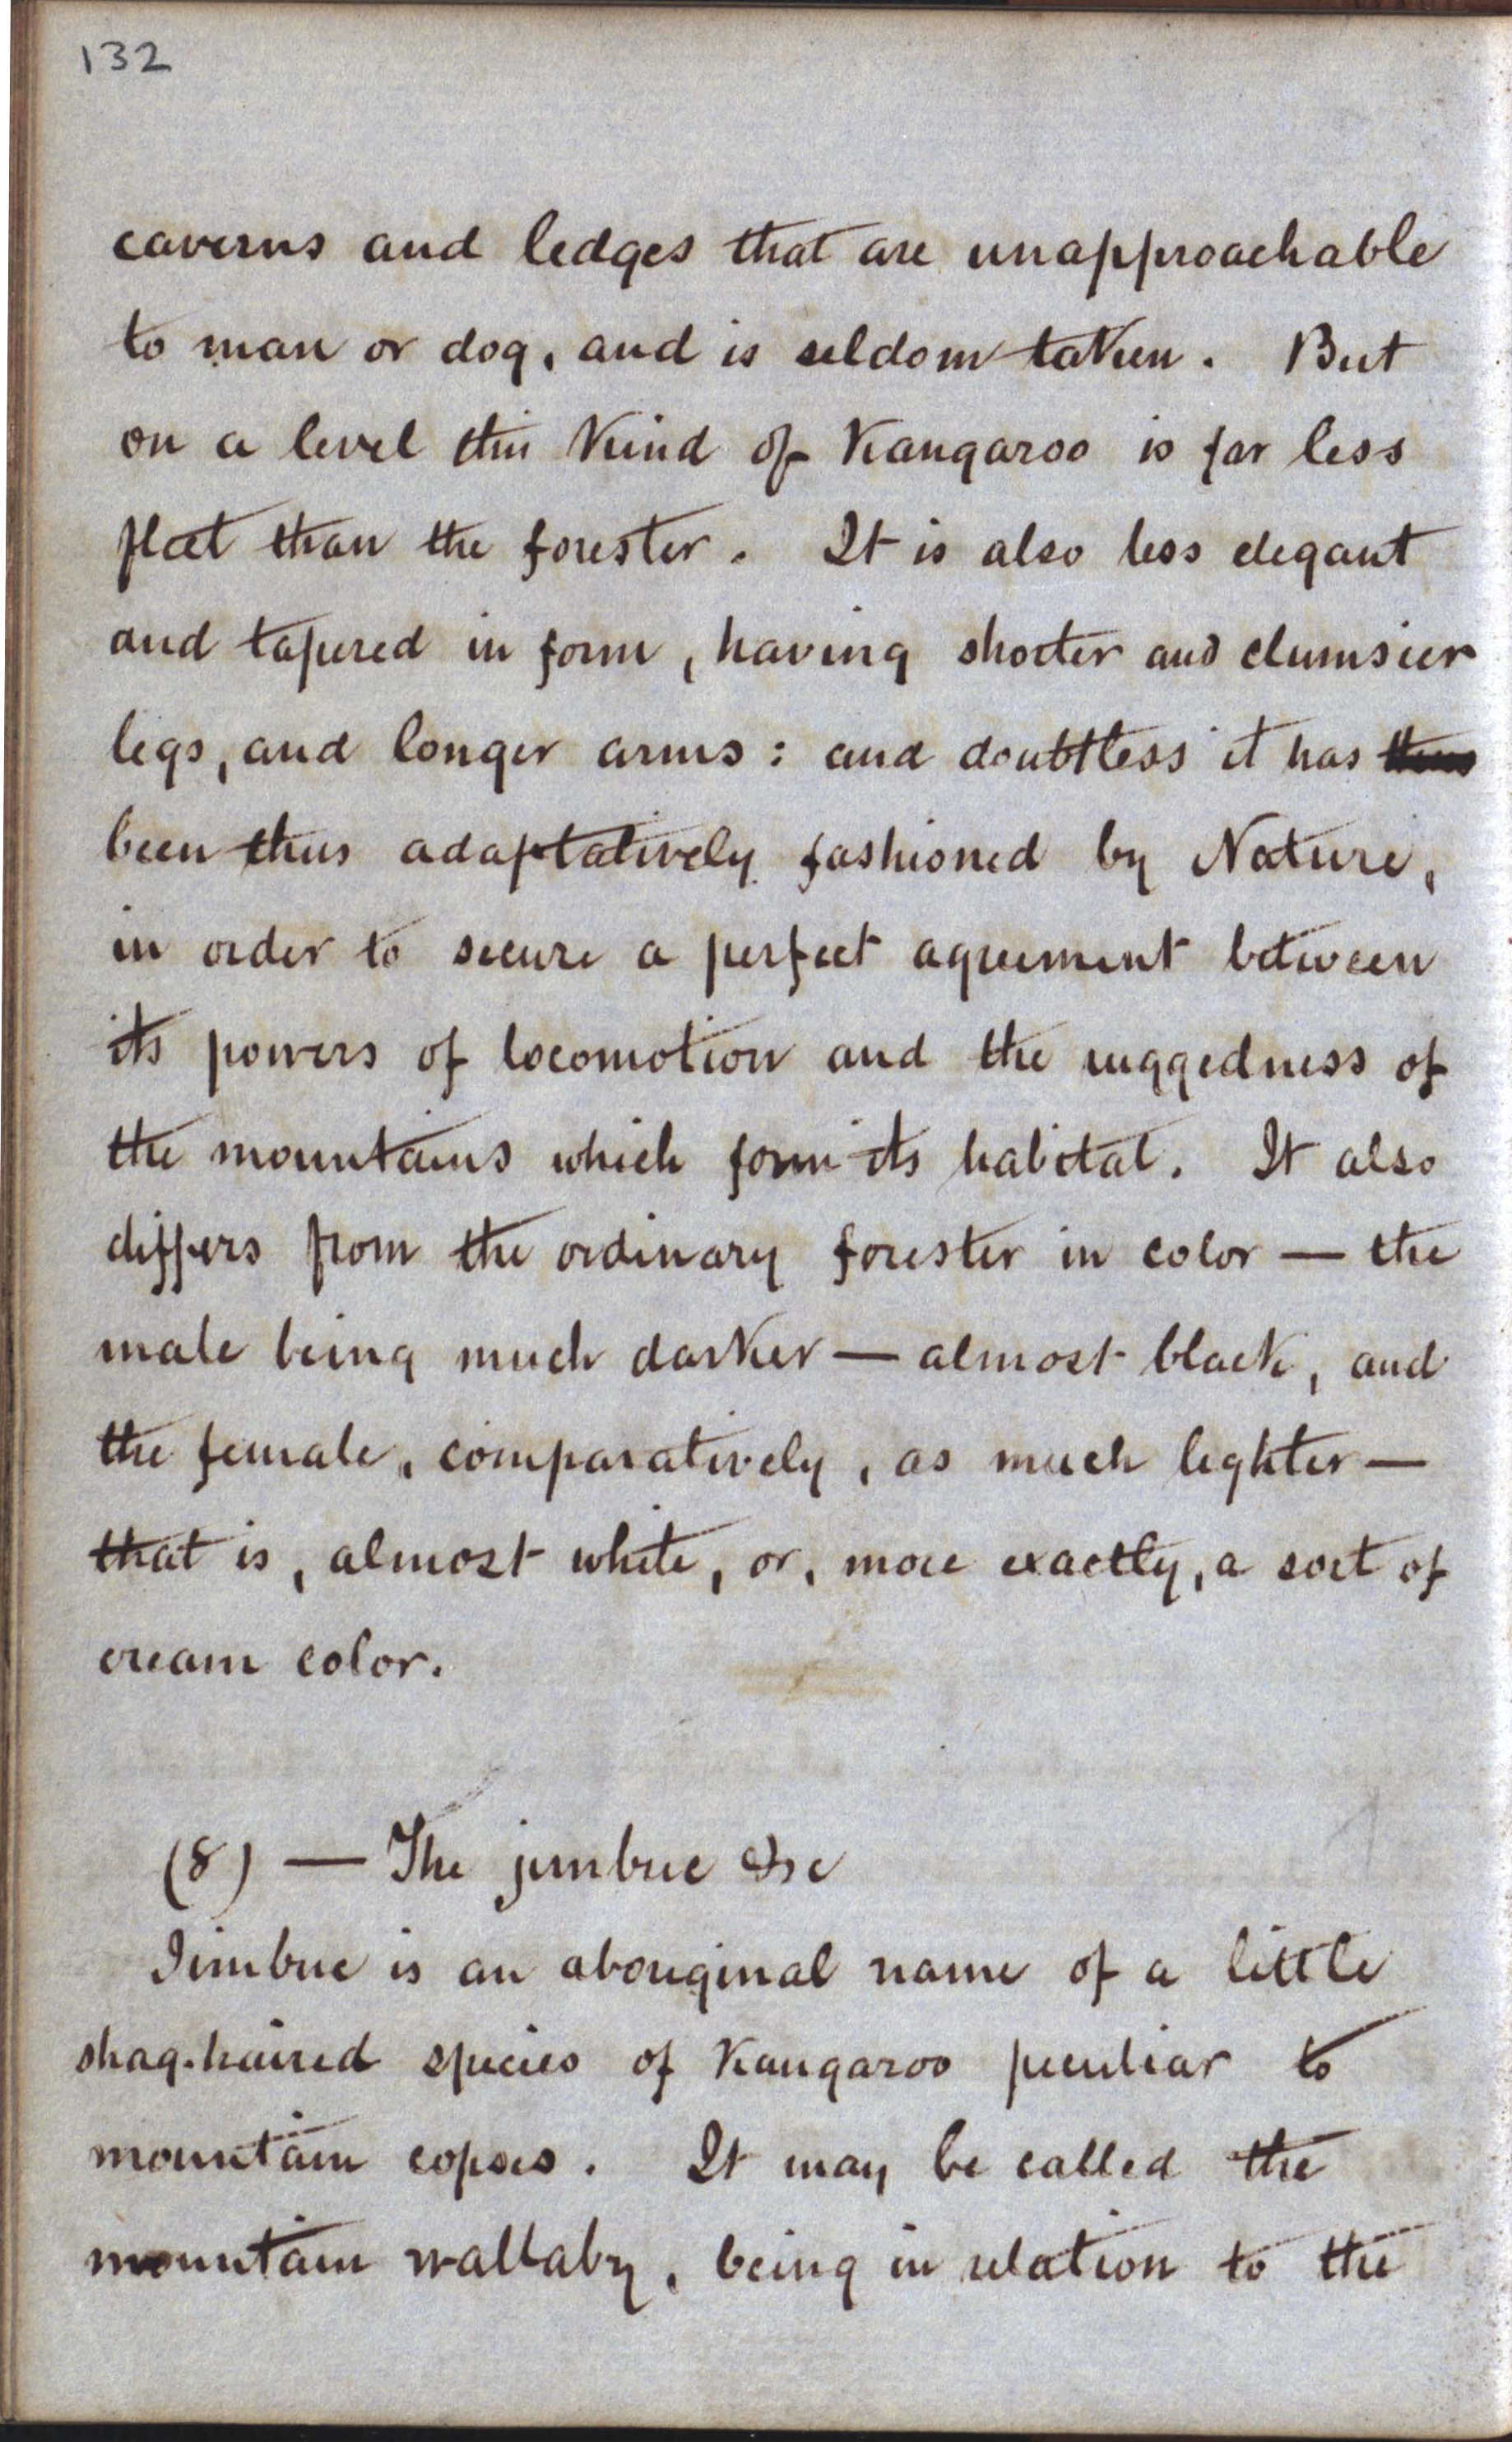 132
caverns and ledges that are unapproachable
to man or dog, and is seldom taken. But
on a level this kind of Kangaroo is far less
fleet than the forester. It is also less elegant
and tapered in form, having shorter and clumsier
legs, and longer arms: and doubtless it has thus
been thus adaptatively fashioned by Nature,
in order to secure a perfect agreement between
its powers of locomotion and the ruggedness of
the mountains which form its habitat. It also
differs from the ordinary forester in color — the
male being much darker — almost black, and
the female, comparatively, as much lighter —
that is, almost white, or, more exactly, a sort of
cream color.
(8) — The jimbuc &c
Jimbuc is an aboriginal name of a little
shag-haired species of Kangaroo peculiar to
mountain copses. It may be called the
mountain wallaby, being in relation to the